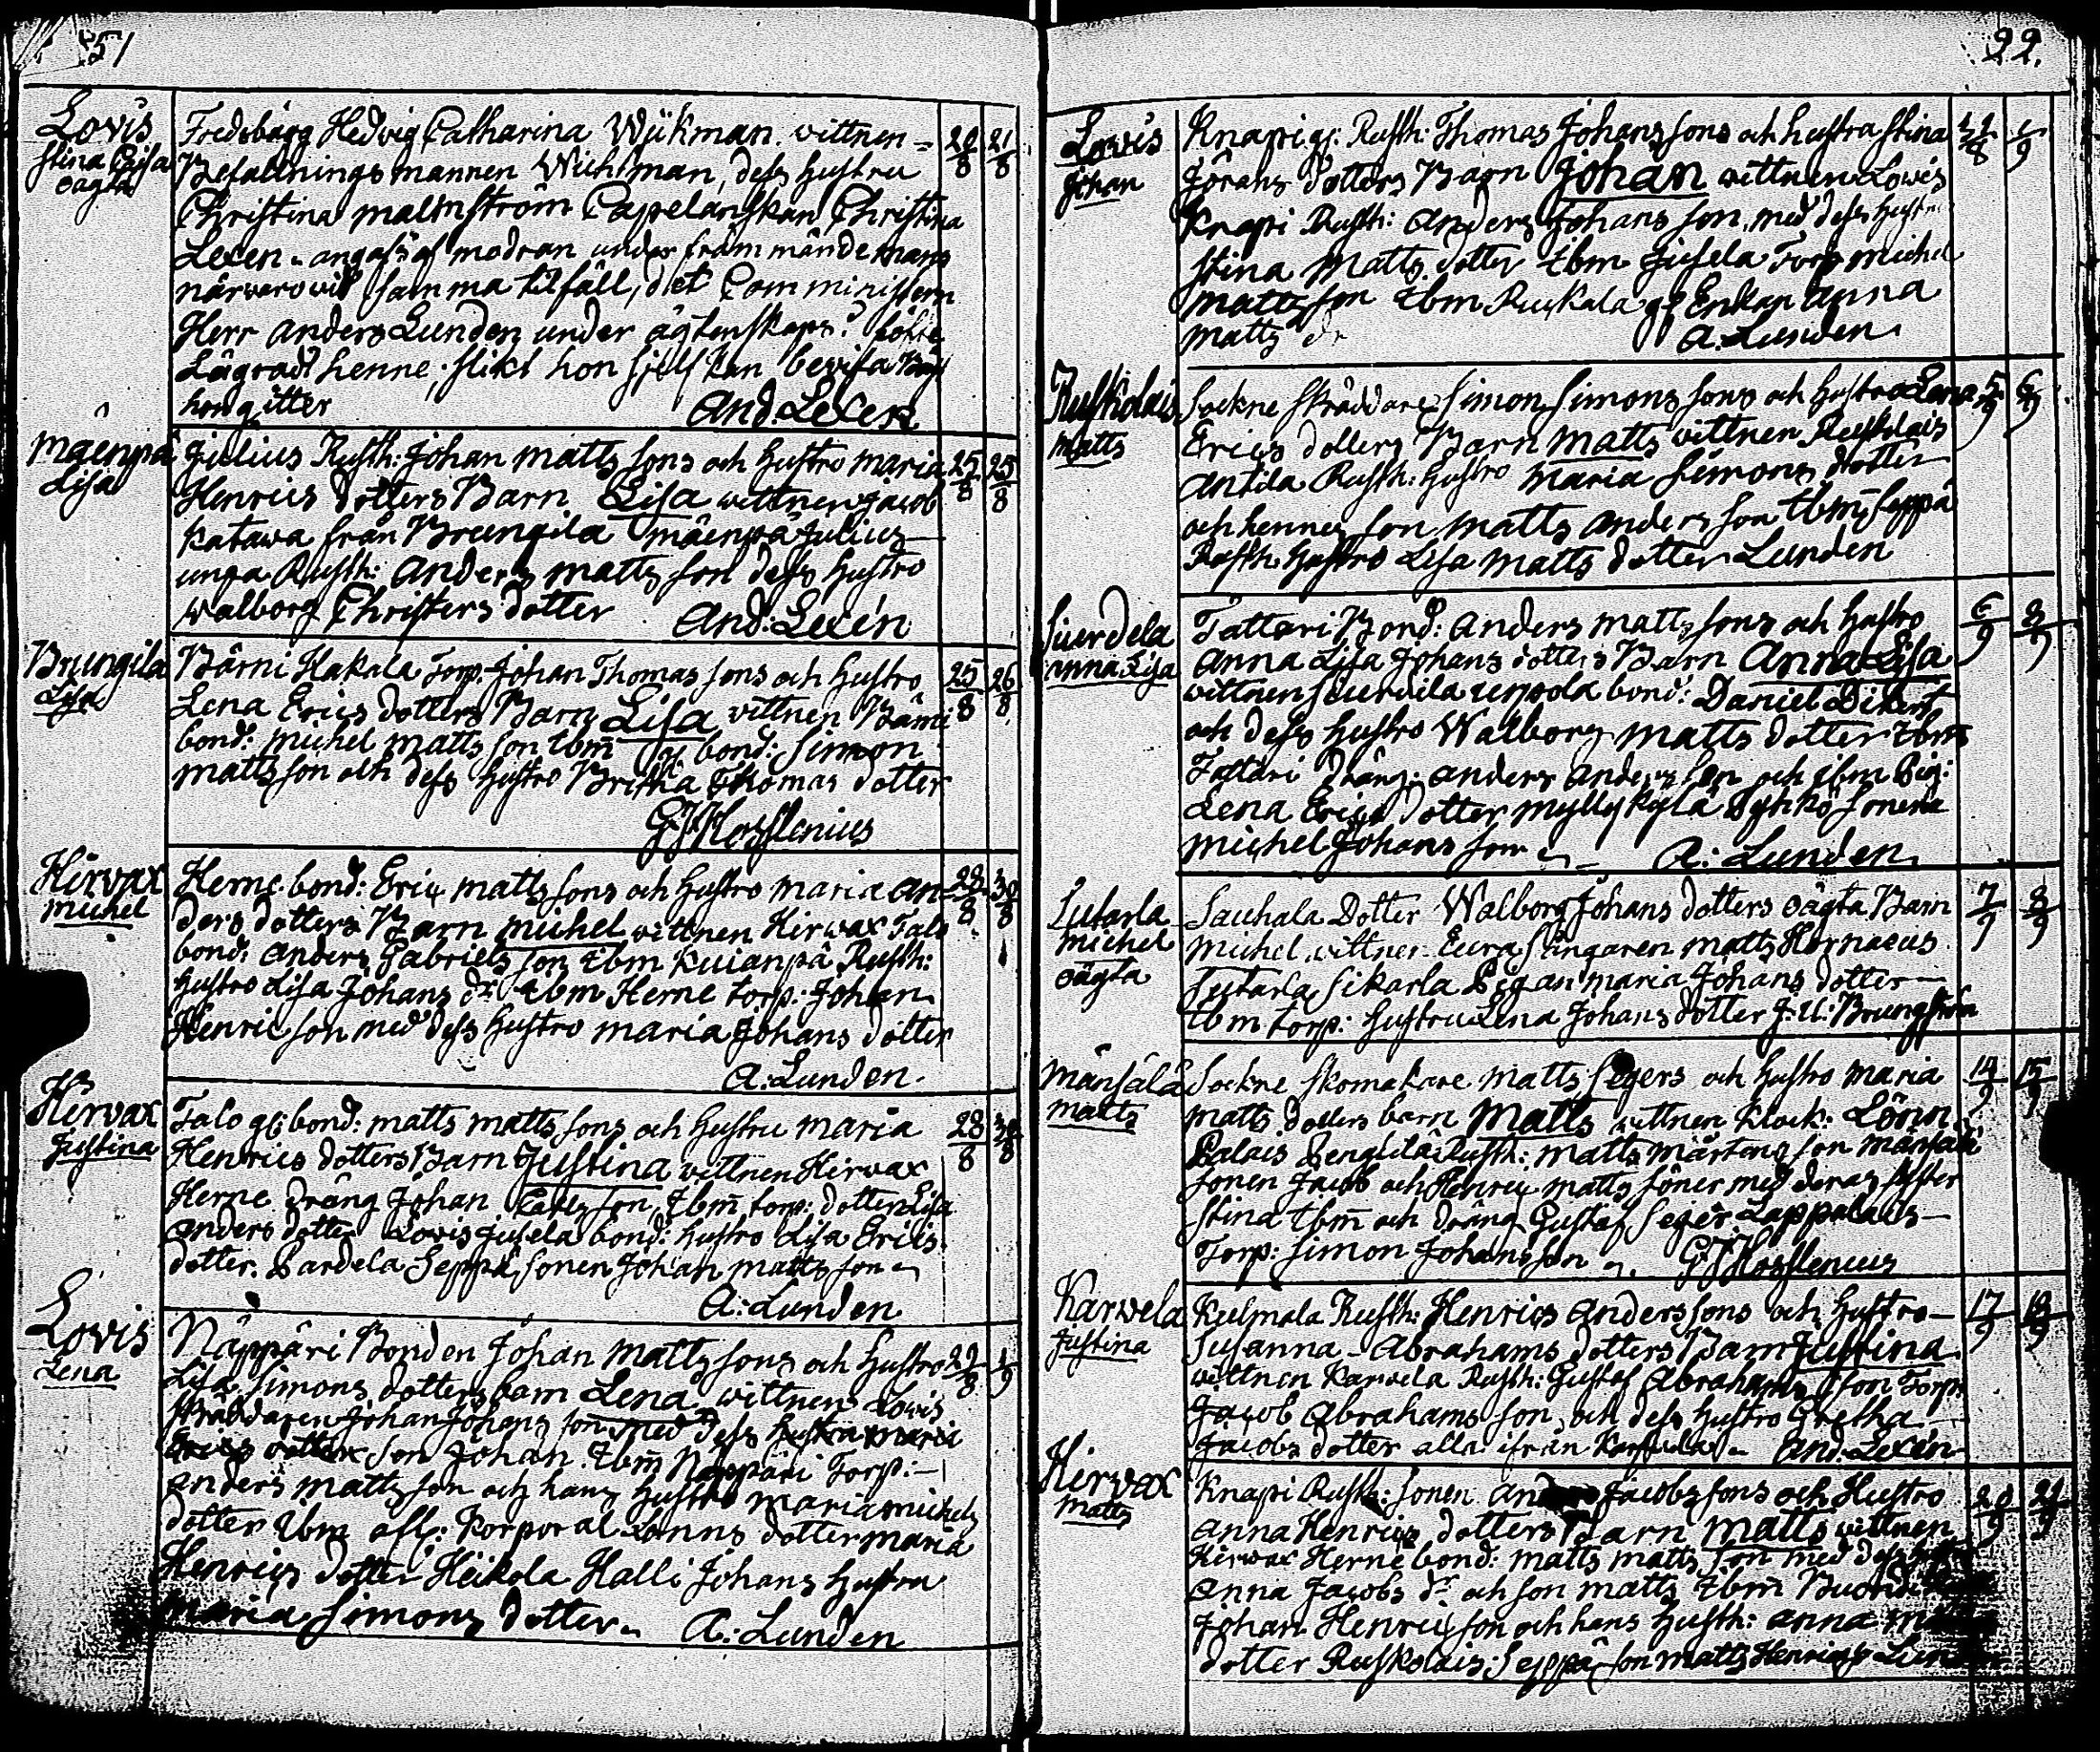 51
Lovis
Stina Caisa
oägta
Fredsbärg Hedvig Catharina Wükman. vittnen =
Befallningsmannen Wichtman, dess hustru
Christina malmström Capelanskan Christina
Lexen. angafs af modran under främmande mans
närvaro vid samma tilfäll, det Comministern
Herr Anders Lunden under ägtenskaps
Lägradt henne; slikt hon sjelf kan bevisa
hon gitter And. Lexen
20/8 21/8
Mäenpä
Lisa
Julius Rusth: Johan Matts sons och hustro Maria
Henrics dotters Barn Lisa wittnen Jacob
Katawa från Brungila Mäenpä Julius
unga Rusth: Anders Matts son dess hustro
Walborg Christers dotter And: Lexén
25/8 25/8
Brungila
Lisa
Bärni Kakala Torp. Johan Thomas sons och hustro
Lena Erics dotters Barn Lisa vittnen Bärni
bond: Michel Matts son Ibm gl bond: Simon
Matts son och dess hustro Britha Thomas dotter
G J Hosslenius
25/8 26/8
Hirvax
Michel
Herne bond: Eric Matts sons och hustro Maria An-
ders dotters Barn Michel vittnen Hirvax Talo
bond: Anders Gabriels son Ibm Kuianpä Rusth:
hustro Lisa Johans dr Ibm Herne torp: Johan
Henric son med dess hustro Maria Johans dotter
A: Lunden
28/8 30/8
Hirvax
Justina
Talo gl: bond: Matts Matts sons och hustru Maria
Henrics dotters Barn Justina vittnen Hirvax
Herne dräng Johan son, Ibm torp: dotter Lisa
Anders dotter Lovis Jusela bond: hustro Lisa Erics
dotter. Pardela Seppä sonen Johan Matts son
A: Lunden
28/8 30/8
Lovis
Lena
Näppäri Bonden Johan Matts sons och hustro
Lisa Simons dotters barn Lena vittnen Lovis
Skräddaren Johan Johans son med dess hustru Maria
Erics dotter son Johan. Ibm Näppäri Torp:
Anders Matts son och hans hustro Maria Michels
dotter Ibm afl: Korporal Lönns dotter Maria
Henrics dotter Heikola Halli Johans hustru
Maria Simons dotter A: Lunden
29/8 1/9
22.
Lovis
Johan
Knapi gl: Rusth: Thomas Johans sons och hustru Stina
Jörans dotters Barn Johan vittnen Lovis
Knapi Rusth: Anders Johans son, med dess hustru
Stina Matts dotter Ibm Jusela Torp Michel
Matts son Ibm Ruskala gl Enkan Anna
Matts dr A. Lunden
31/8 1/9
Ruskolais
Matts
Sockne Skräddare Simon Simons sons och hustro Lena
Erics dotters Barn Matts vittnen Ruskolais
Antila Rusth: hustro Maria Simons dotter
och hennes son Matts Anders son Ibm Seppä
Rusth: hustro Lisa Matts dotter Lunden
5/9 6/9
Suerdela
Anna Lisa
Tattari Bond: Anders Matts sons och hustro
Anna Lisa Johans dotters Barn Anna Lisa
vittnen bond: Daniel Dikert
och dess hustro Walborg Matts dotter Ibm
Tattari dräng: Anders Anders son och Ibm Pig:
Lena Erics dotter Myllykylä sonen
Michel Johans son A: Lunden
6/9 8/9
Sutarla
Michel
oägta
Sauhala Dotter Walborg Johans dotters oägta Barn
Michel. vittnen Eura Klingaren Matts Hornaeus
Sutarla Sikarla Pigan Maria Johans dotter
Ibm torp: hustru Lena Johans dotter J: U: Brungström
7/9 8/9
Mänsälä
Matts
Sockne Skomakare Matts Segers och hustro Maria
Matts dotters barn Matts vittnen Klock: Lönn
Palais Pengilä Rusth: Matts Mårtens son Mänsälä
sonen Jacob och Henric Matts söner med deras syster
Stina Ibm och dräng Gustaf Seger Lappalais
Torp: Simon Johans son G J Hosslenius
14/9 15/9
Karvela
Justina
Kulmala Rusth: Henrics Anders sons och hustro
Susanna Abrahams dotters Barn Justina
vittnen Karvela Rusth: Gustaf Abrahams son Torp
Jacob Abrahams son, och dess hustro Gretha
Jacobs dotter alla ifrån Karvela And: Lexén
17/9 18/9
Hirvax
Matts
Knapi Rusth: sonen Anders Jacobs sons och Hustro
Anna Henrics dotters Barn Matts vittnen
Hirvax Herne bond: Matts Matts son med dess
Anna Jacobs dr och son Matts Ibm
Johan Henric son och hans husth: Anna
dotter Ruskolais: Seppä son Matts Henrics
20/9 21/9